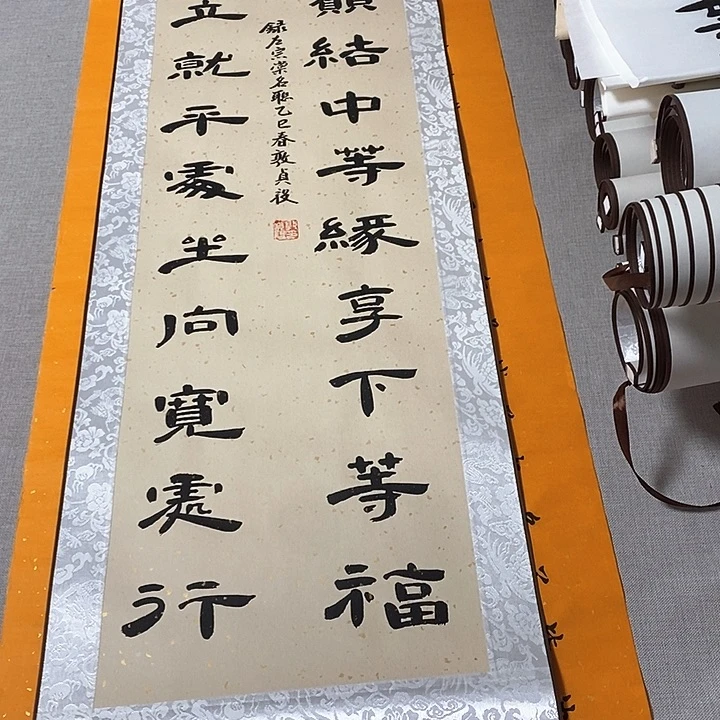 願結中等緣享下等福
立就平處坐向寬處行
録左宗棠名聯乙巳春